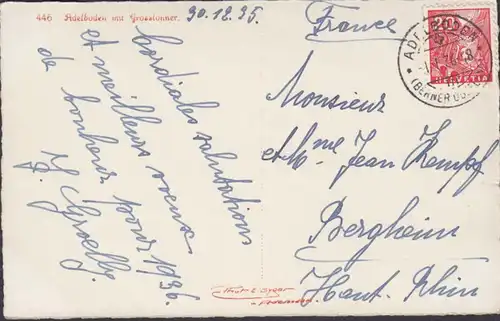 446 Adelboden mit Grosslonner.
30.12.35.
Cordiales salutations
et meilleurs voeux
de bonheur pour 1936.
France
Monsieur
et Mme Jean Kempf
Bergheim
Haut-Rhin
20
HELVETIA
ADELBODEN
(BERNER OB